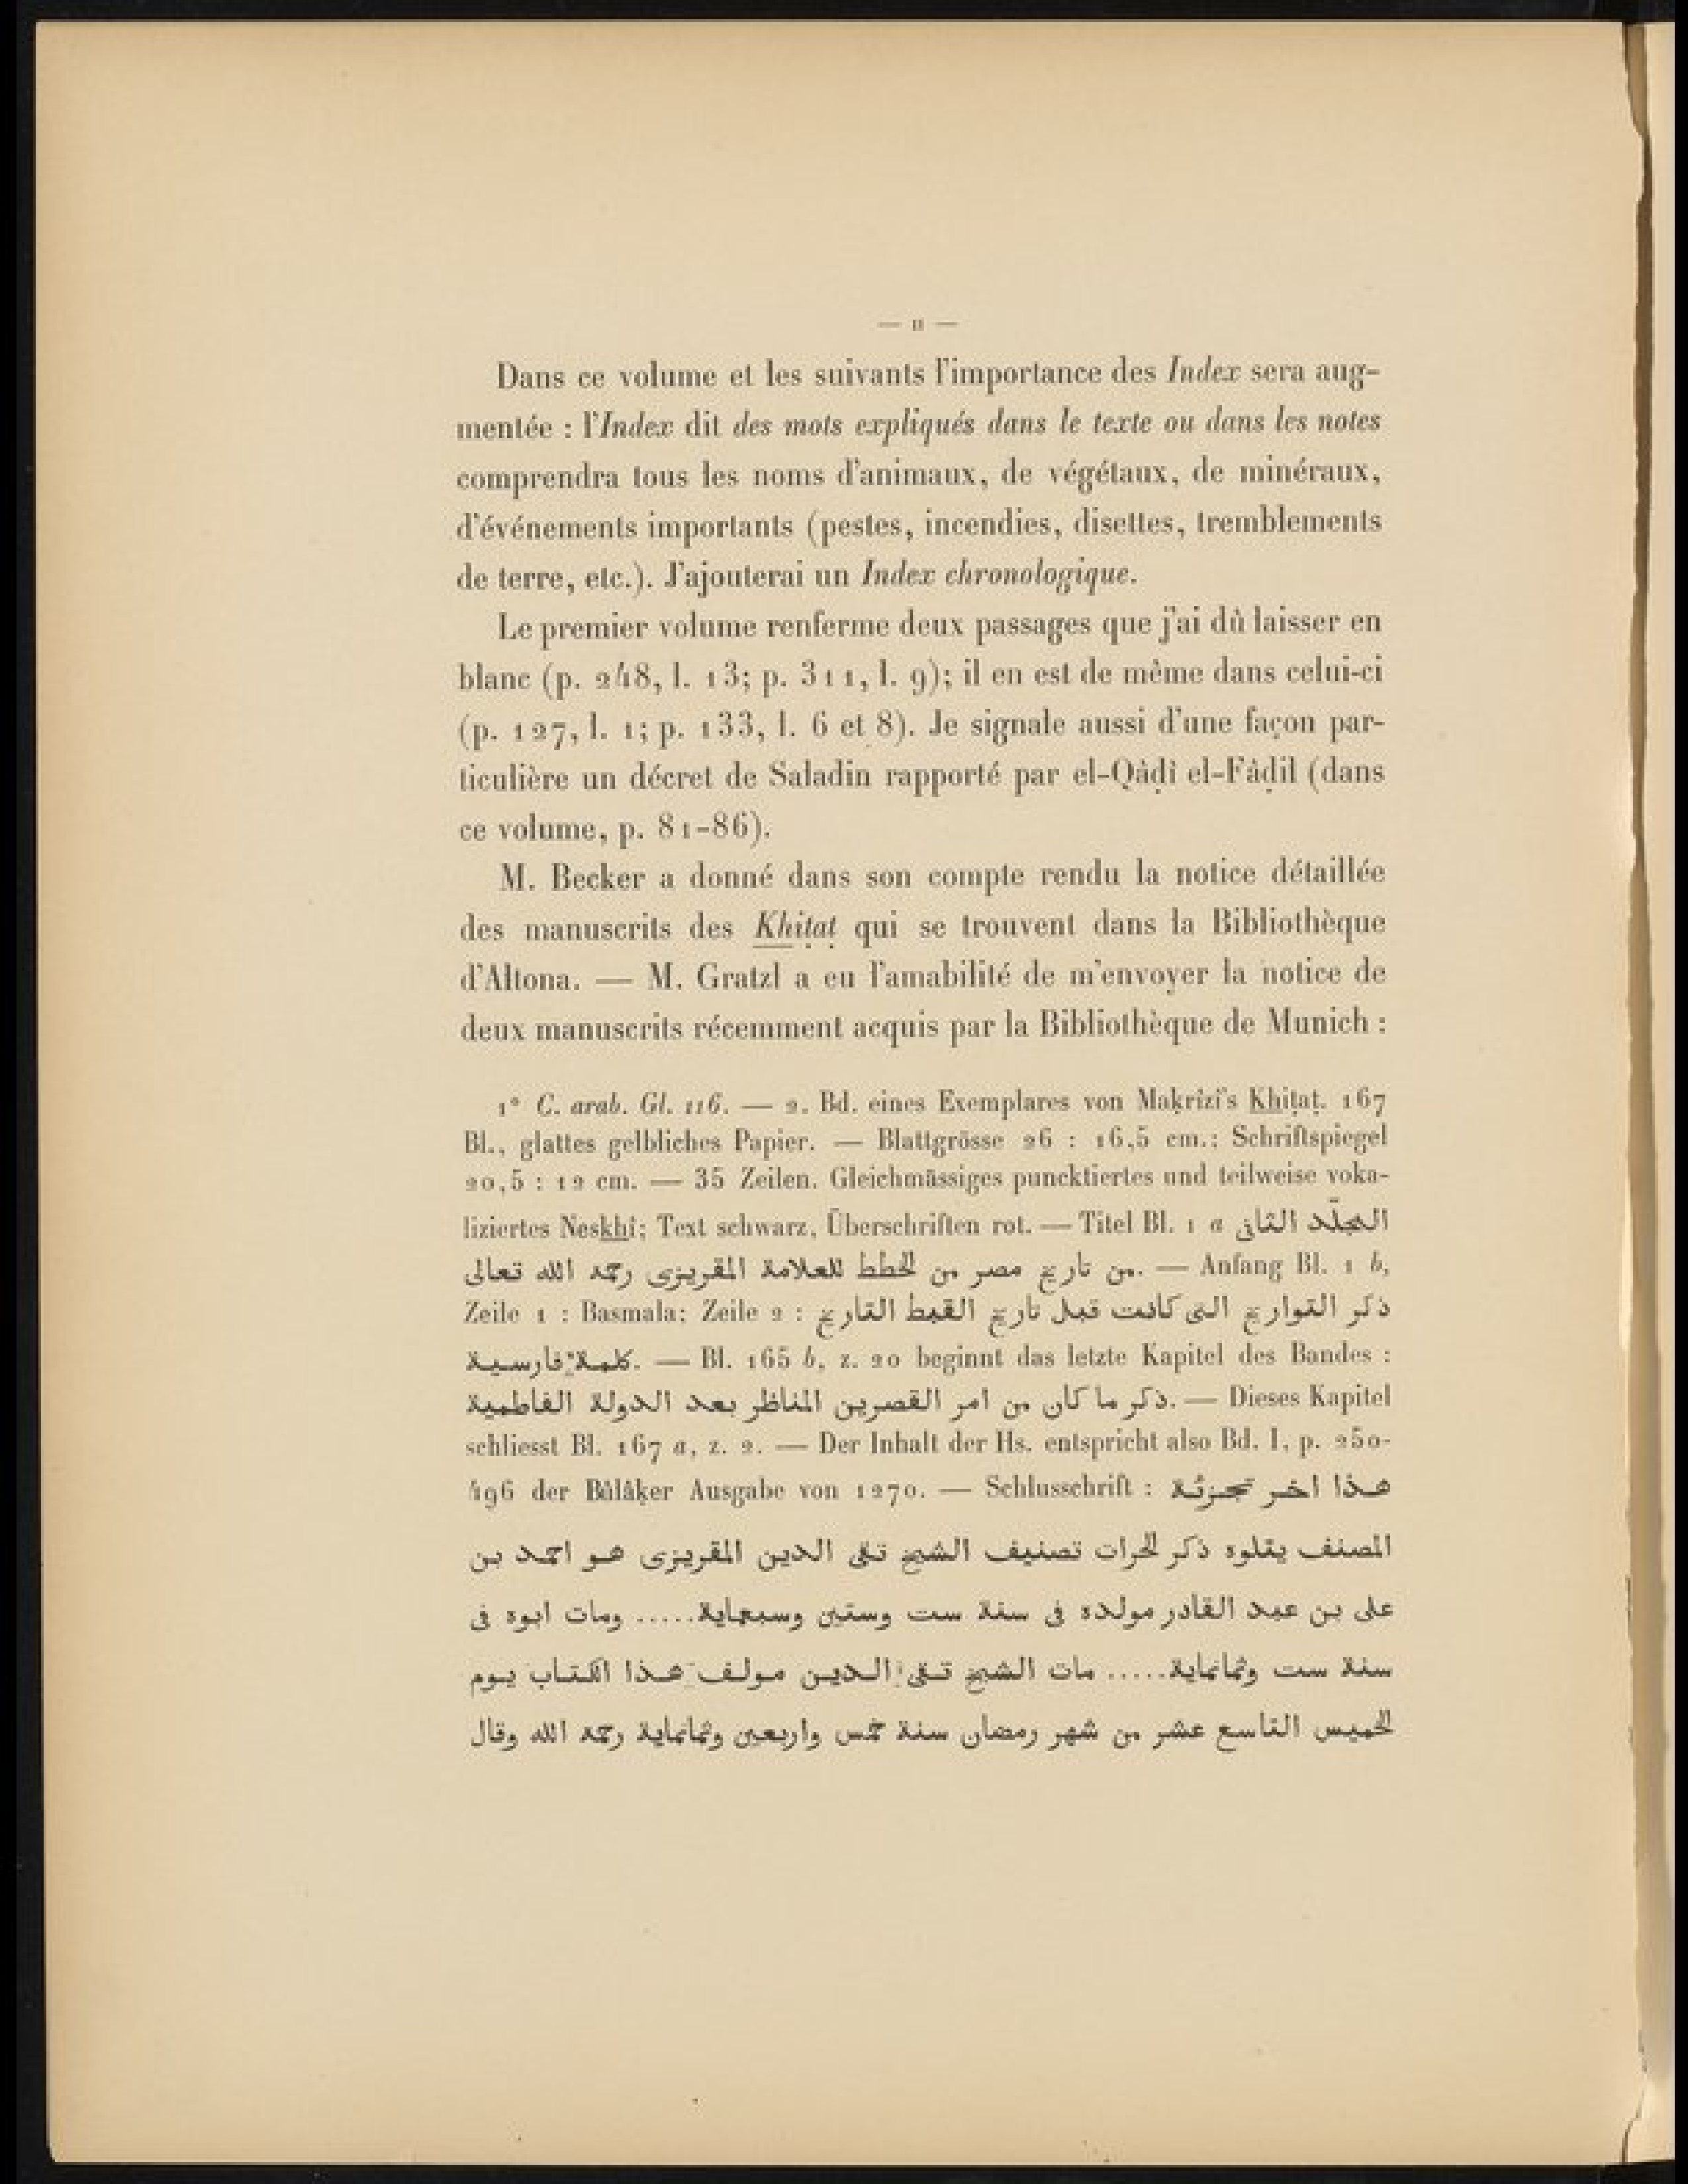 — II —
Dans ce volume et les suivants l'importance des Index sera aug-
mentée : l'Index dit des mots expliqués dans le texte ou dans les notes
comprendra tous les noms d'animaux, de végétaux, de minéraux,
d'événements importants (pestes, incendies, disettes, tremblements
de terre, etc.). J'ajouterai un Index chronologique.
Le premier volume renferme deux passages que j'ai dû laisser en
blanc (p. 248, l. 13; p. 311, l. 9); il en est de même dans celui-ci
(p. 127, l. 1; p. 133, l. 6 et 8). Je signale aussi d'une façon par-
ticulière un décret de Saladin rapporté par el-Qâḍî el-Fâḍil (dans
ce volume, p. 81-86).
M. Becker a donné dans son compte rendu la notice détaillée
des manuscrits des Khiṭaṭ qui se trouvent dans la Bibliothèque
d'Altona. — M. Gratzl a eu l'amabilité de m'envoyer la notice de
deux manuscrits récemment acquis par la Bibliothèque de Munich :
1° C. arab. Gl. 116. — 2. Bd. eines Exemplares von Maḳrîzî's Khiṭaṭ. 167
Bl., glattes gelbliches Papier. — Blattgrösse 26 : 16,5 cm.; Schriftspiegel
20,5 : 12 cm. — 35 Zeilen. Gleichmässiges puncktiertes und teilweise voka-
liziertes Neskhî; Text schwarz, Überschriften rot. — Titel Bl. 1 a المجلّد الثانى
من تاريخ مصر من الخطط للعلامة المقريزى رحمه الله تعالى. — Anfang Bl. 1 b,
Zeile 1 : Basmala; Zeile 2 : ذكر التواريخ التى كانت قبل تاريخ القبط التاريخ
كلمة فارسية. — Bl. 165 b, z. 20 beginnt das letzte Kapitel des Bandes :
ذكر ما كان من امر القصرين المناظر بعد الدولة الفاطمية. — Dieses Kapitel
schliesst Bl. 167 a, z. 2. — Der Inhalt der Hs. entspricht also Bd. I, p. 250-
496 der Bûlâḳer Ausgabe von 1270. — Schlusschrift : هذا اخر تجزئة
المصنف يتلوه ذكر الحرات تصنيف الشيخ تقى الدين المقريزى هو احمد بن
على بن عبد القادر مولده فى سنة ست وستين وسبعماية..... ومات ابوه فى
سنة ست وثمانماية..... مات الشيخ تقى الدين مولف هذا الكتاب يوم
الخميس التاسع عشر من شهر رمضان سنة خمس واربعين وثمانماية رحمه الله وقال